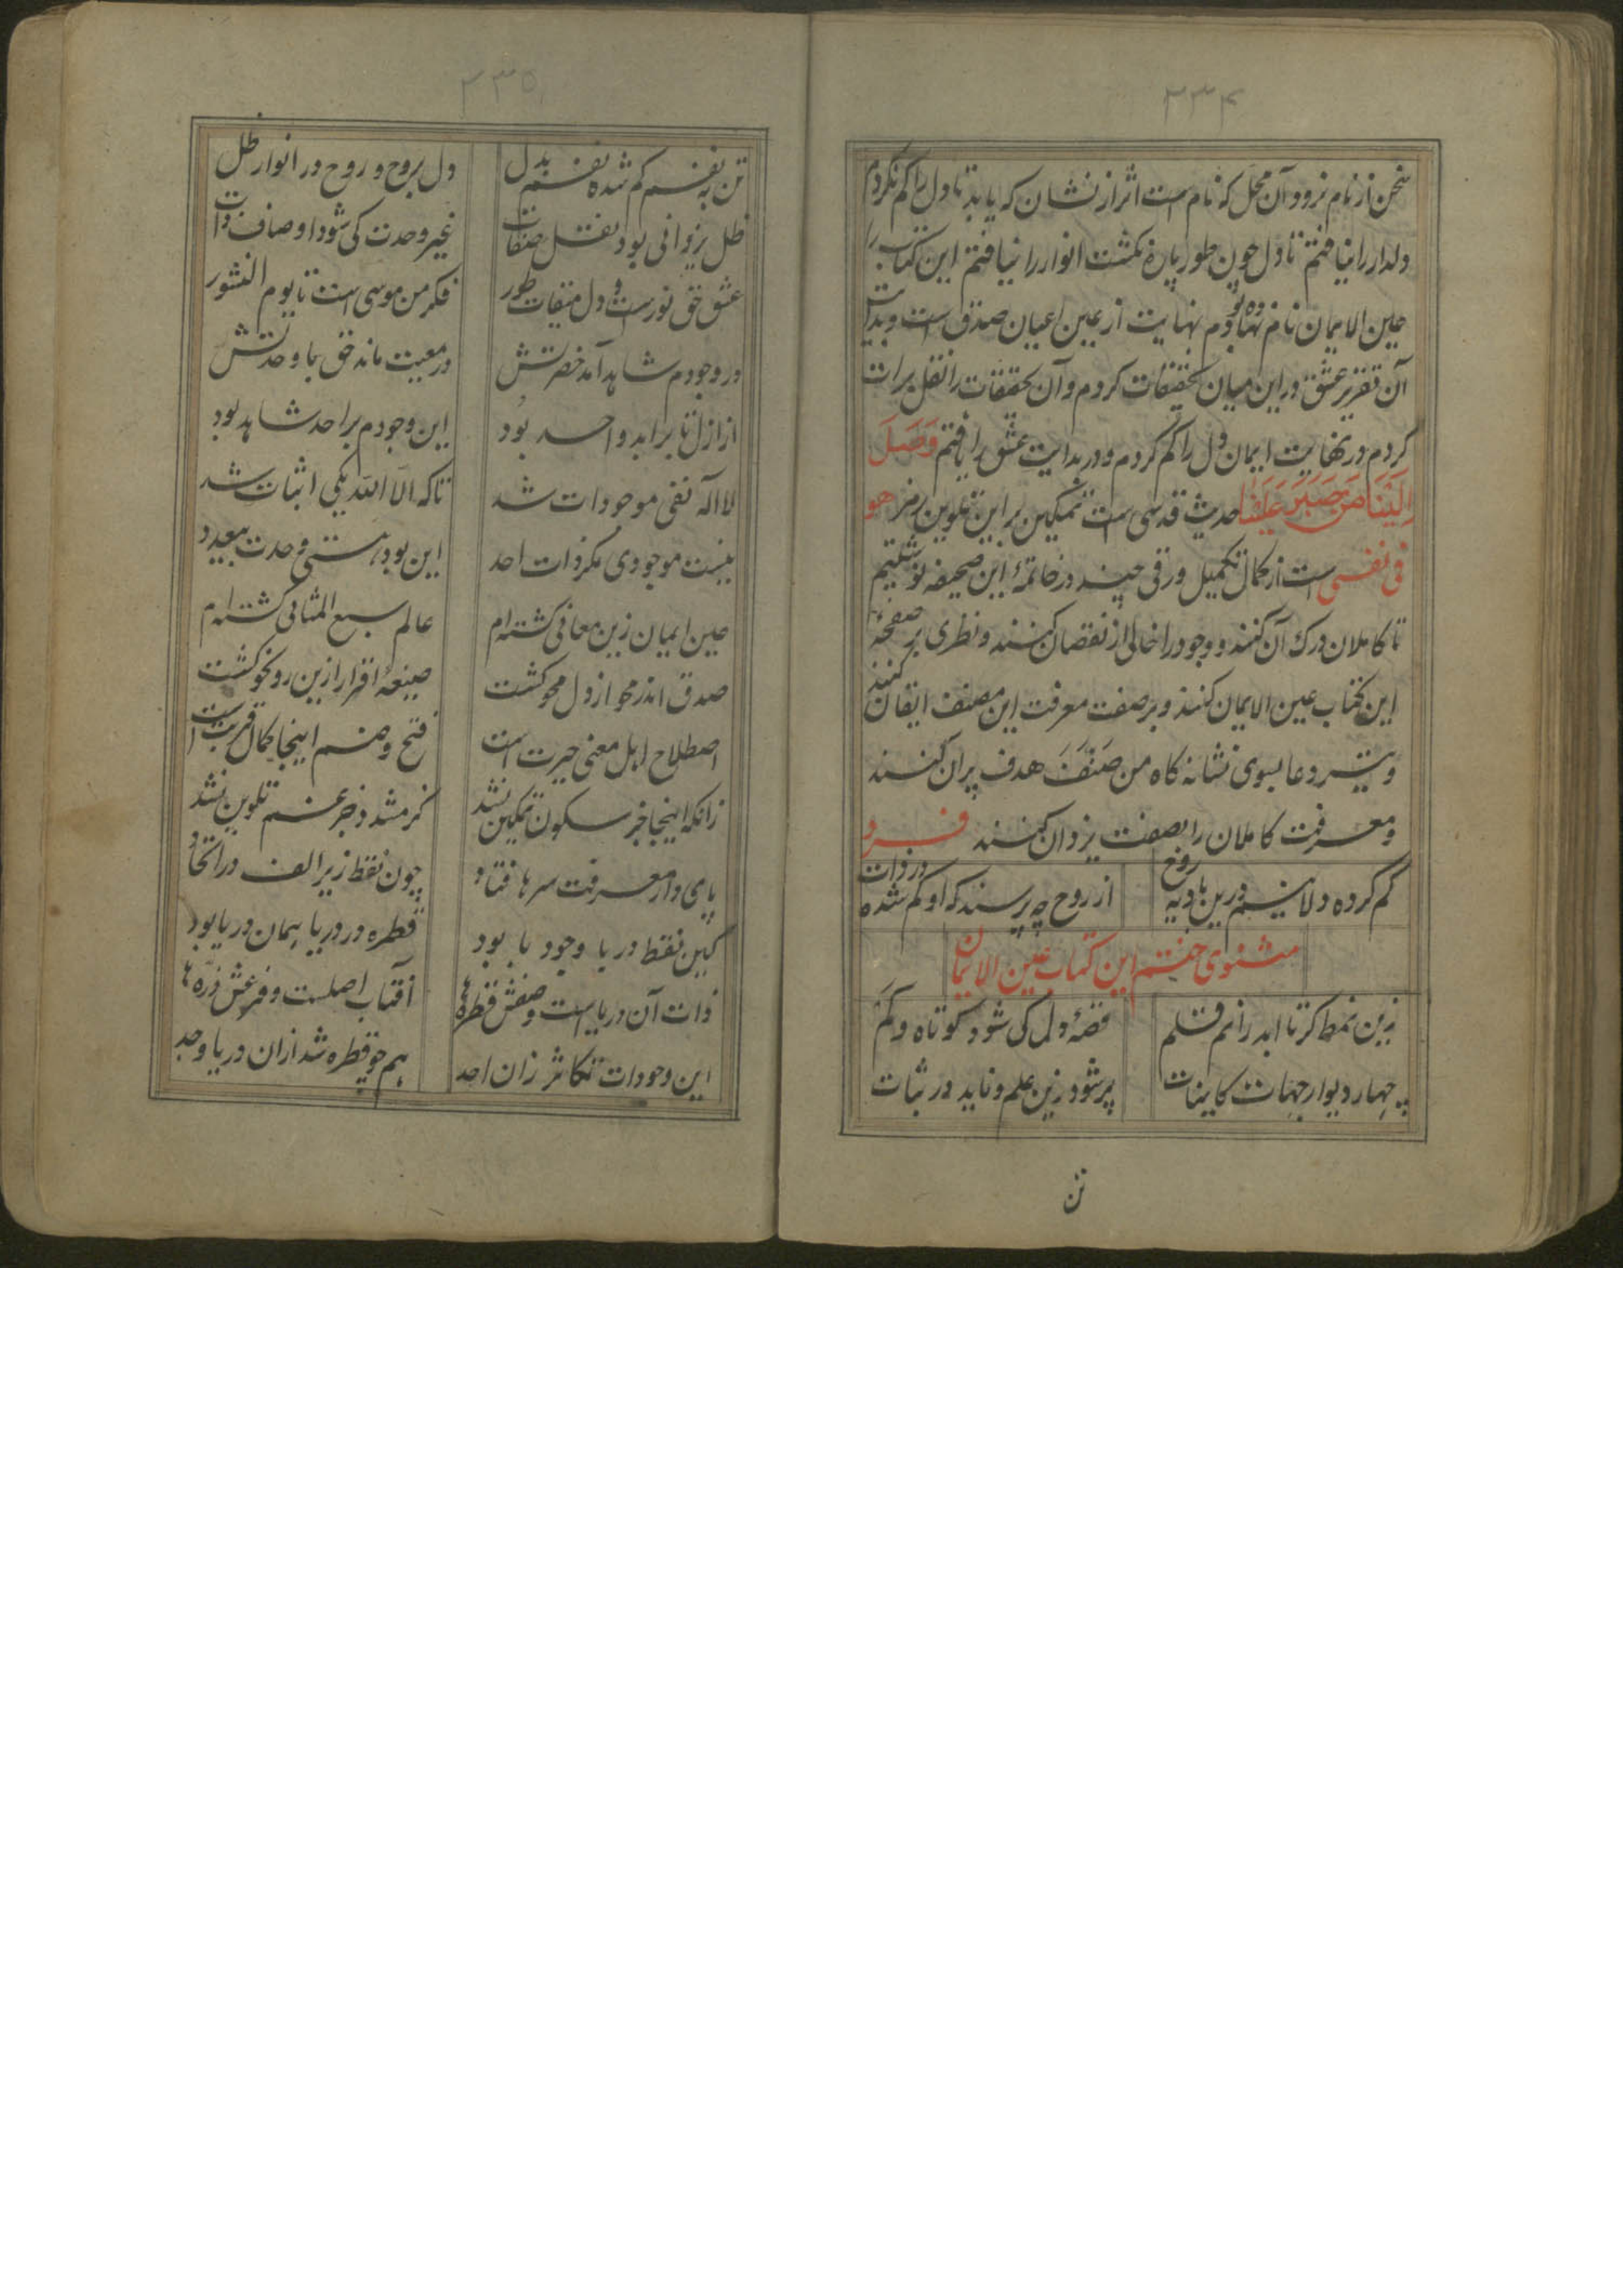 ۲۳۴
سخن از نام نرود و آن محل که نام است اثر از نشان که یابد تا دل را کم نکردم
دلدار را نیافتم تا دل چون طور پاره نکشت انوار را نیافتم این کتاب را
عین الایمان نام نهادم نهایت از عین اعیان صدق است و بدایت
آن تقریر عشق در این میان تحقیقات کردم و آن تحقیقات را نقل برات
کردم در نهایت ایمان دل را کم کردم و در بدایت عشق را یافتم وَصَلَ
اِلَیْنَا مَن صَبَرَ عَلَیْنَا حدیث قدسی است تمکین بر این تلوین رمز هو
فی نفسی است از کمال تکمیل ورقی چند در خاتمۀ این صحیفه نوشتیم
تا کاملان درک آن کنند و وجود را خالی از نقصان کنند و نظری بر صفحۀ
این کتاب عین الایمان کنند و بر صفت معرفت این مصنف ایقان کنند
و تیر دعا بسوی نشانه کاه من صَنَّفَ هدف پران کنند
و معرفت کاملان را بصفت یزدان کنند فرد
کم کرده دلانیم درین بادیه روح از روح چه پرسند که او کم شده در ذات
مثنوی ختم این کتاب عین الایمان
زین نمط کر تا ابد رانم قلم قصۀ دل کی شود کوتاه و کم
چهار دیوار جهات کاینات پر شود زین علم و ناید در ثبات
تن
۲۳۵
تن به نفسم کم شده نفسم بدل دل بروح و روح در انوار ظل
ظل یزدانی بود نقل صفات غیر وحدت کی شود اوصاف ذات
عشق حق نورست و دل میقات طور فکر من موسی است تا یوم النشور
در وجودم شاهد آمد حضرتش در معیت ماند حق با وحدتش
از ازل تا بر ابد واحد بود این وجودم بر احد شاهد بود
لا اله نفی موجودات شد تا که الا الله یکی اثبات شد
نیست موجودی مکر ذات احد این بود هستی وحدت بیعدد
عین ایمان زین معانی کشته‌ام عالم سبع المثانی کشته‌ام
صدق اندر محو از دل محو کشت صیغۀ اقرار ازین رو نحو کشت
اصطلاح اهل معنی حیرت است فتح و ضم اینجا کمال قربت است
زانکه اینجا جز سکون تمکین نشد کر مشدد جز عنم تلوین نشد
پای دار معرفت سرها فتاد چون نقط زیر الف در اتحاد
کین نقط دریا وجود با بود قطره در دریا همان دریا بود
ذات آن دریاست و صفش قطره‌ها آفتاب اصلست و فرعش ذره‌ها
این وجودات تکاثر زان احد هم چو قطره شد ازان دریا وجد